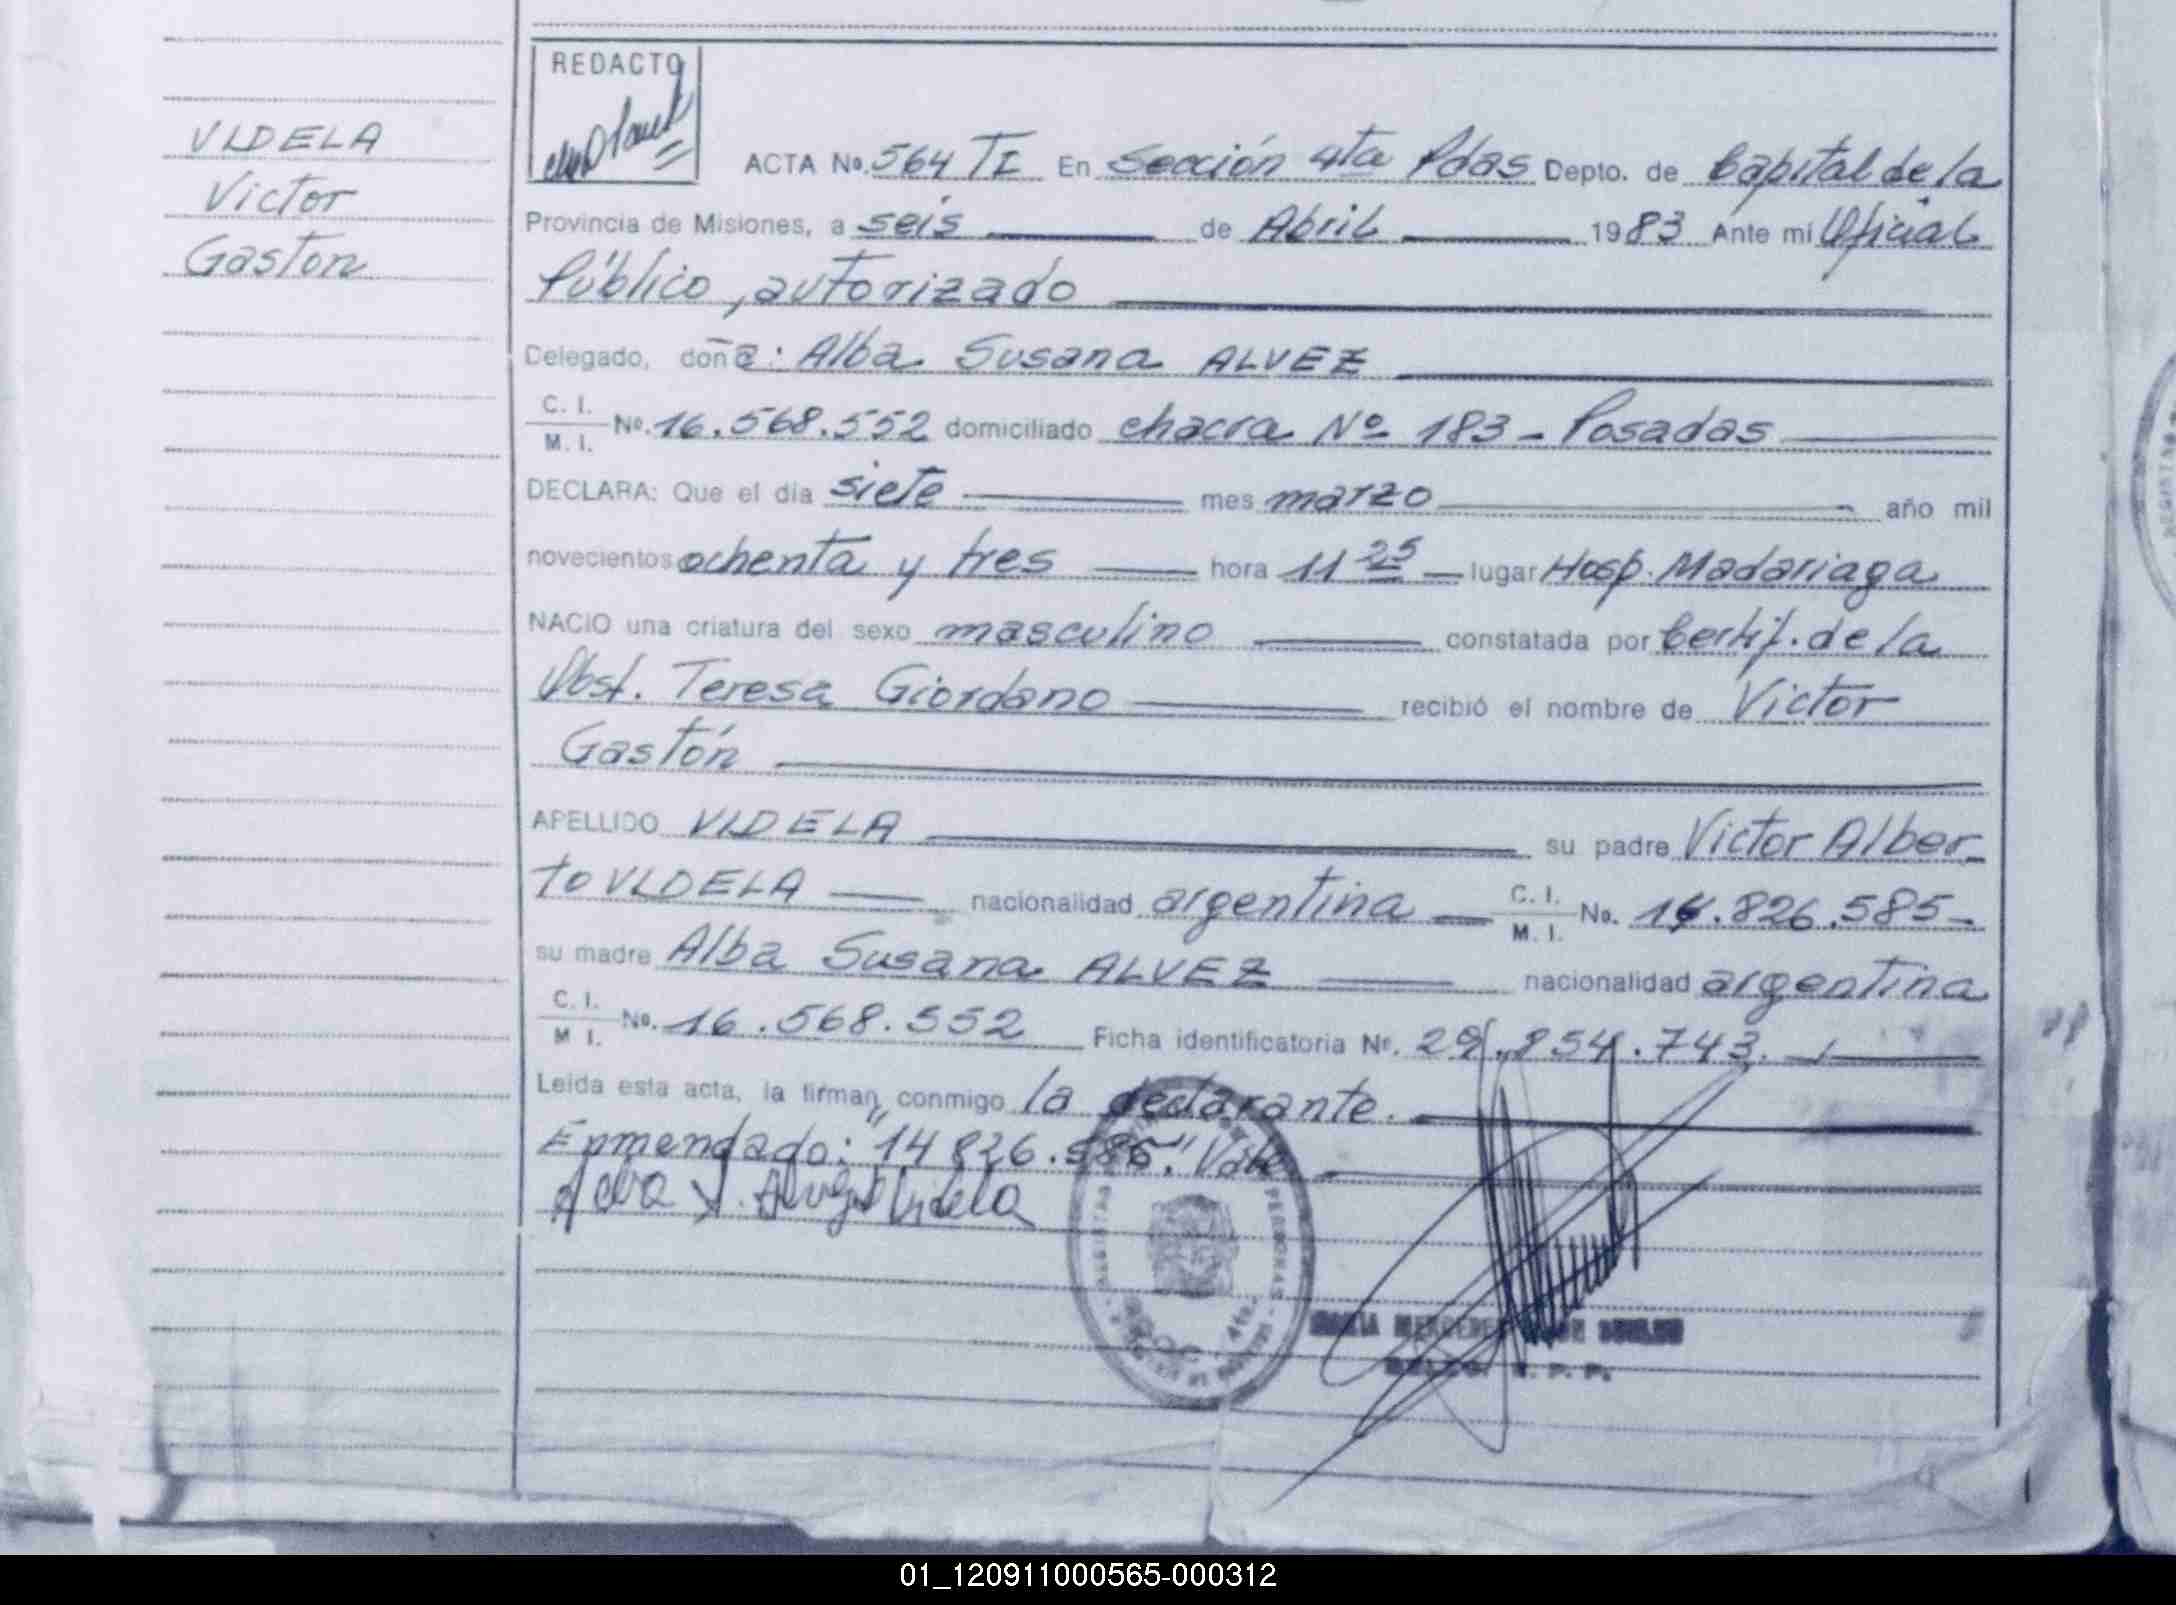 REDACTO
VIDELA
Victor
Gaston
ACTA No. 564 TI En Sección 4ta Pdas Depto. de Capital de la
Provincia de Misiones, a seis de Abril 1983 Ante mi Oficial
Público, autorizado
Delegado, doña: Alba Susana ALVEZ
C. I.
M. I. No. 16.568.552 domiciliado chacra Nº 183 - Posadas
DECLARA: Que el dia siete mes marzo año mil
novecientos ochenta y tres hora 11 25 lugar Hosp. Madariaga
NACIO una criatura del sexo masculino constatada por Certif. de la
Obst. Teresa Giordano recibió el nombre de Victor
Gastón
APELLIDO VIDELA su padre Victor Alber-
to VIDELA nacionalidad argentina C. I. M. I. No. 14.826.585-
su madre Alba Susana ALVEZ nacionalidad argentina
C. I.
M I. No. 16.568.552 Ficha identificatoria Nº. 29.854.743.
Leida esta acta, la firman, conmigo la declarante.
Enmendado: "14 826.585." Vale
MARIA MERCEDES
01_120911000565-000312